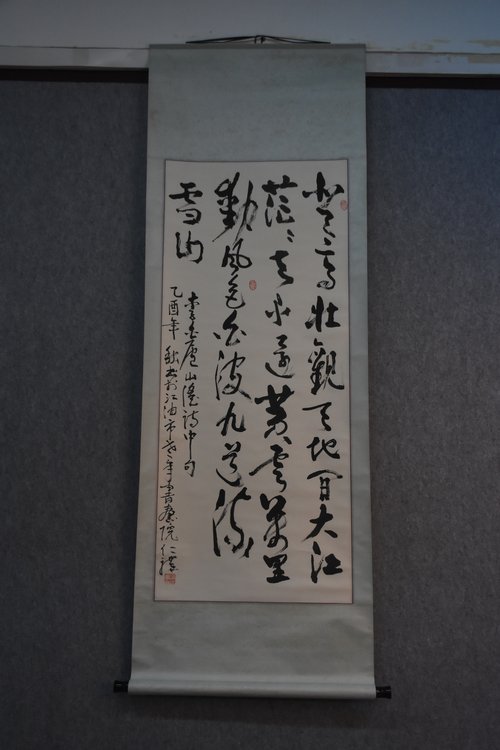 登高壯觀天地間大江
茫茫去不還黄雲萬里
動風色白波九道流
雪山
李白廬山謠詩中句
乙酉年秋书於江油市老年書畫院仁